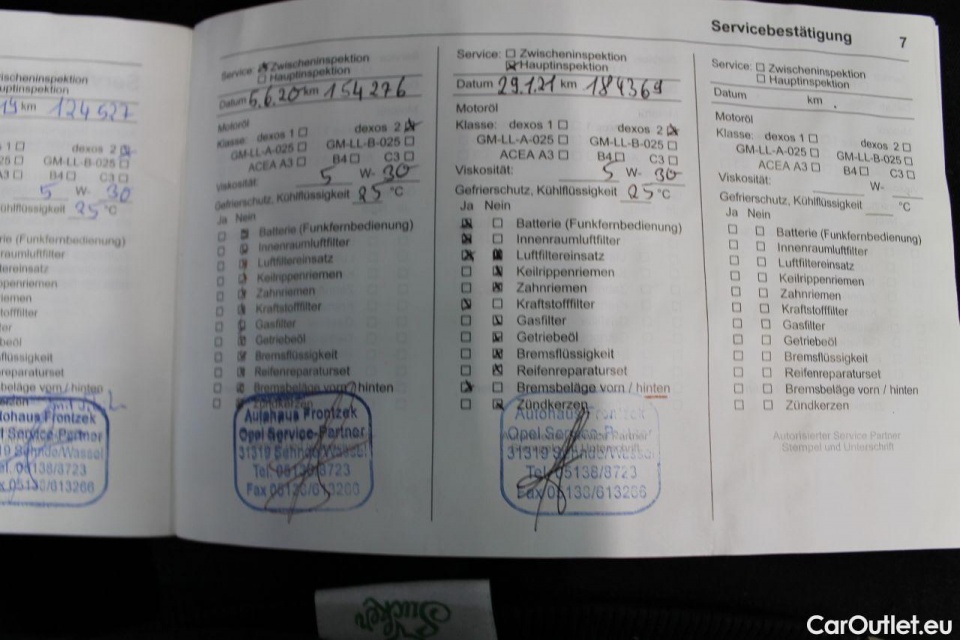 Servicebestätigung
7
km 124527
dexos 2
GM-LL-B-025
B4 C3
5 W- 30
Kühlflüssigkeit 25 °C
Service: Zwischeninspektion
Hauptinspektion
Datum 5.6.20 km 154276
Motoröl
Klasse: dexos 1 dexos 2
GM-LL-A-025 GM-LL-B-025
ACEA A3 B4 C3
Viskosität: 5 W- 30
Gefrierschutz, Kühlflüssigkeit 25 °C
Ja Nein
Batterie (Funkfernbedienung)
Innenraumluftfilter
Luftfiltereinsatz
Keilrippenriemen
Zahnriemen
Kraftstofffilter
Gasfilter
Getriebeöl
Bremsflüssigkeit
Reifenreparaturset
Bremsbeläge vorn / hinten
Zündkerzen
Autohaus Frontzek
Opel Service-Partner
31319 Sehnde/Wassel
Tel. 05138/8723
Fax 05138/613266
Service: Zwischeninspektion
Hauptinspektion
Datum 29.1.21 km 184369
Motoröl
Klasse: dexos 1 dexos 2
GM-LL-A-025 GM-LL-B-025
ACEA A3 B4 C3
Viskosität: 5 W- 30
Gefrierschutz, Kühlflüssigkeit 25 °C
Ja Nein
Batterie (Funkfernbedienung)
Innenraumluftfilter
Luftfiltereinsatz
Keilrippenriemen
Zahnriemen
Kraftstofffilter
Gasfilter
Getriebeöl
Bremsflüssigkeit
Reifenreparaturset
Bremsbeläge vorn / hinten
Zündkerzen
Autohaus Frontzek
Opel Service-Partner
31319 Sehnde/Wassel
Tel. 05138/8723
Fax 05138/613266
Service: Zwischeninspektion
Hauptinspektion
Datum km
Motoröl
Klasse: dexos 1 dexos 2
GM-LL-A-025 GM-LL-B-025
ACEA A3 B4 C3
Viskosität: W-
Gefrierschutz, Kühlflüssigkeit °C
Ja Nein
Batterie (Funkfernbedienung)
Innenraumluftfilter
Luftfiltereinsatz
Keilrippenriemen
Zahnriemen
Kraftstofffilter
Gasfilter
Getriebeöl
Bremsflüssigkeit
Reifenreparaturset
Bremsbeläge vorn / hinten
Zündkerzen
Autorisierter Service Partner
Stempel und Unterschrift
CarOutlet.eu